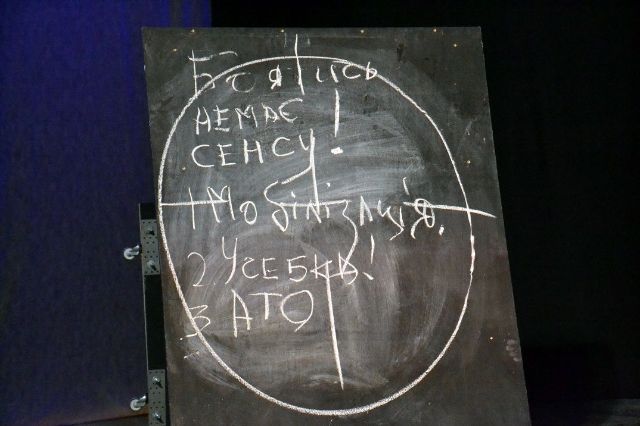 Боятись
НЕМАЄ
СЕНСУ!
1 Мобілізація.
2. УСЕБКИ!
3 АТО